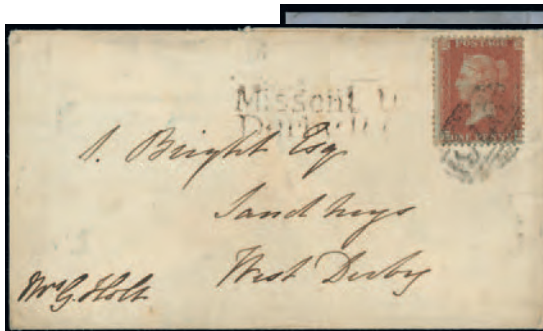 POSTAGE
Missent
S. Bright Esq
Sandheys
West Derby
Mrs G. Holt